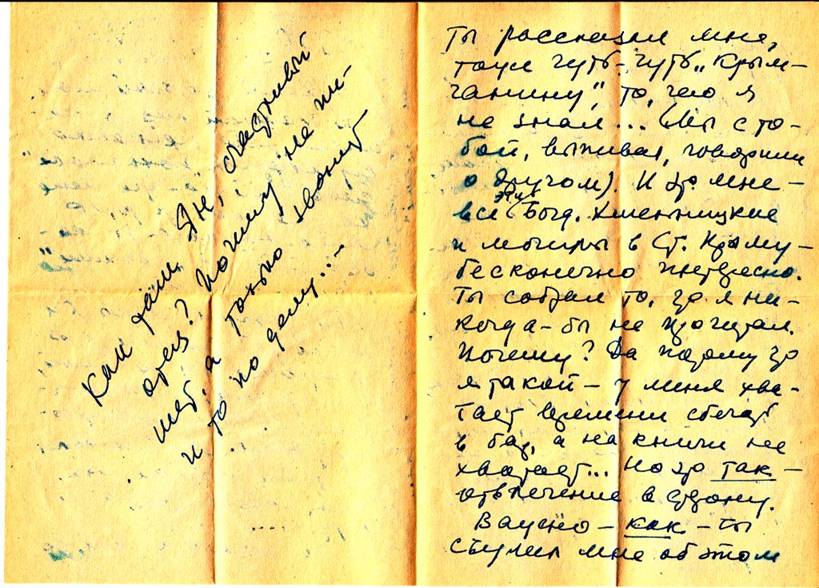 Как наш Ян, счастливый
отец? Почему не пи-
шет, а только звонит
и то по делу...
Ты рассказал мне,
чуть-чуть „Крым-
чанину", то, чего я
не знал... (Мы с то-
бой, выпивая, говорили
о другом). И это мне –
все эти Богд. Хмельницкие
и мечети в Ст. Крыму –
бесконечно интересно.
Ты собрал то, что я ни-
когда-бы не прочитал.
Почему? Да потому что
я такой – у меня хва-
тает времени сбегать
в бар, а на книги не
хватает... Но это так –
отвлечение в сторону.
Важно – как – ты
мне об этом